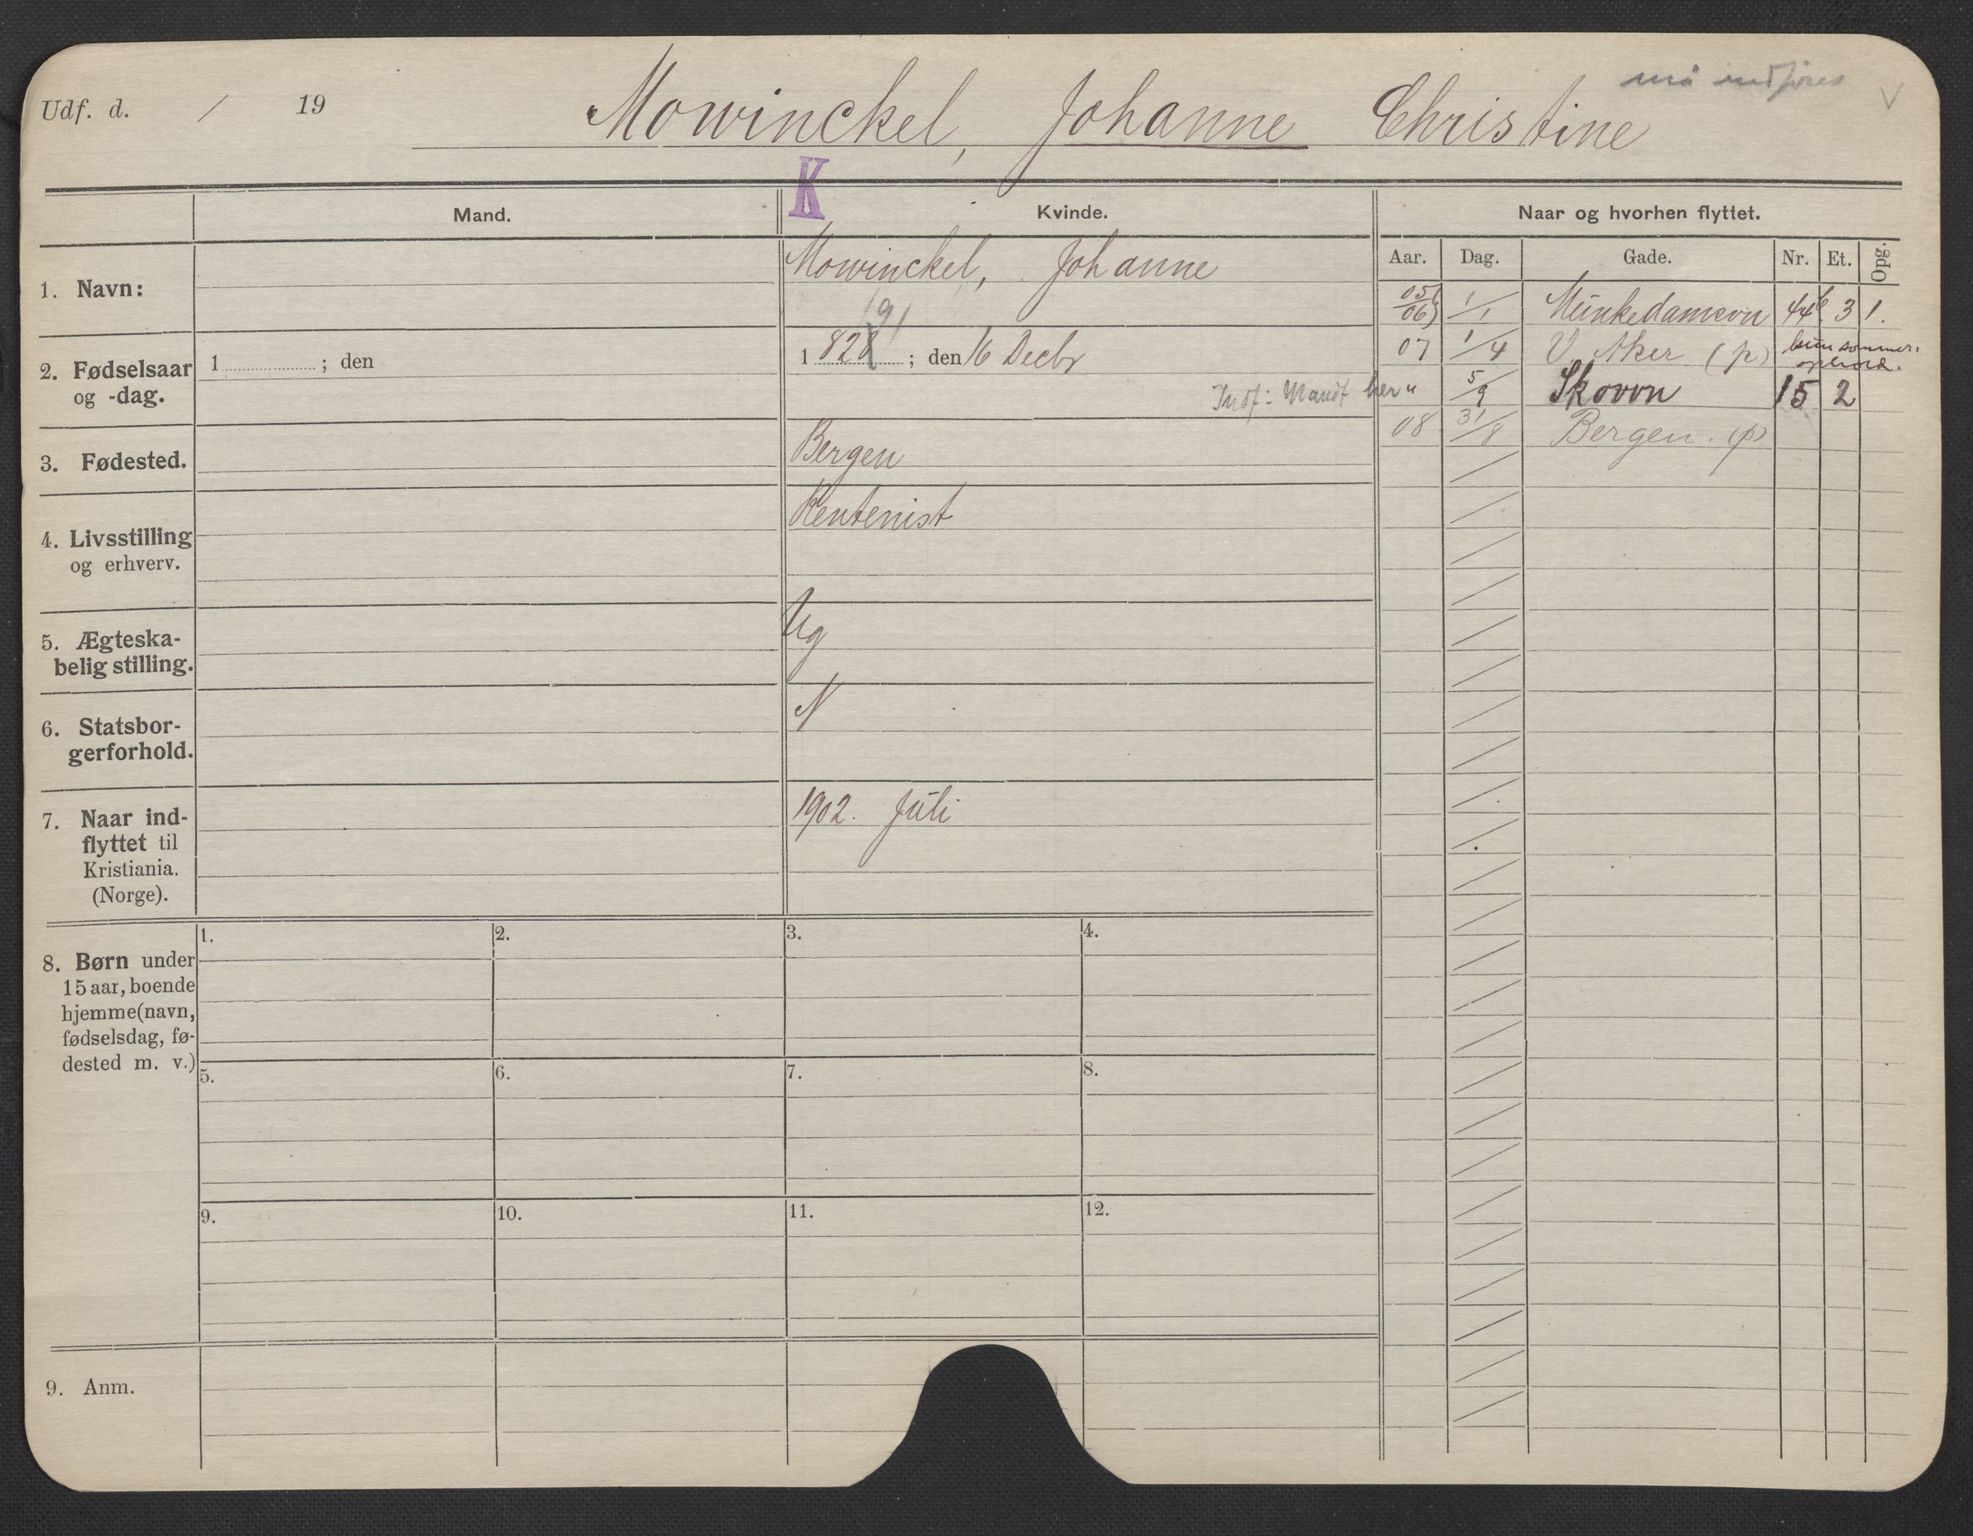 Udf. d. / 19 Mowinckel, Johanne Christine må indføres V
K
Mand. Kvinde. Naar og hvorhen flyttet.
Aar. Dag. Gade. Nr. Et. Opg.
1. Navn: Mowinckel, Johanne
05/06 1/1 Munkedamsvn 44b 3 1.
2. Fødselsaar og -dag. 1 ; den 1 828 ; den 16 Decbr
/91
07 1/4 V. Aker (p) kun sommer-
ophold.
Indf: Mandt her " 5/9 Skovvn 15 2
08 31/8 Bergen. (p)
3. Fødested. Bergen
4. Livsstilling
og erhverv. Rentenist
5. Ægteska-
belig stilling. Ug
6. Statsbor-
gerforhold. N
7. Naar ind-
flyttet til
Kristiania.
(Norge). 1902. Juli
8. Børn under
15 aar, boende
hjemme (navn,
fødselsdag, fø-
dested m. v.)
1. 2. 3. 4.
5. 6. 7. 8.
9. 10. 11. 12.
9. Anm.